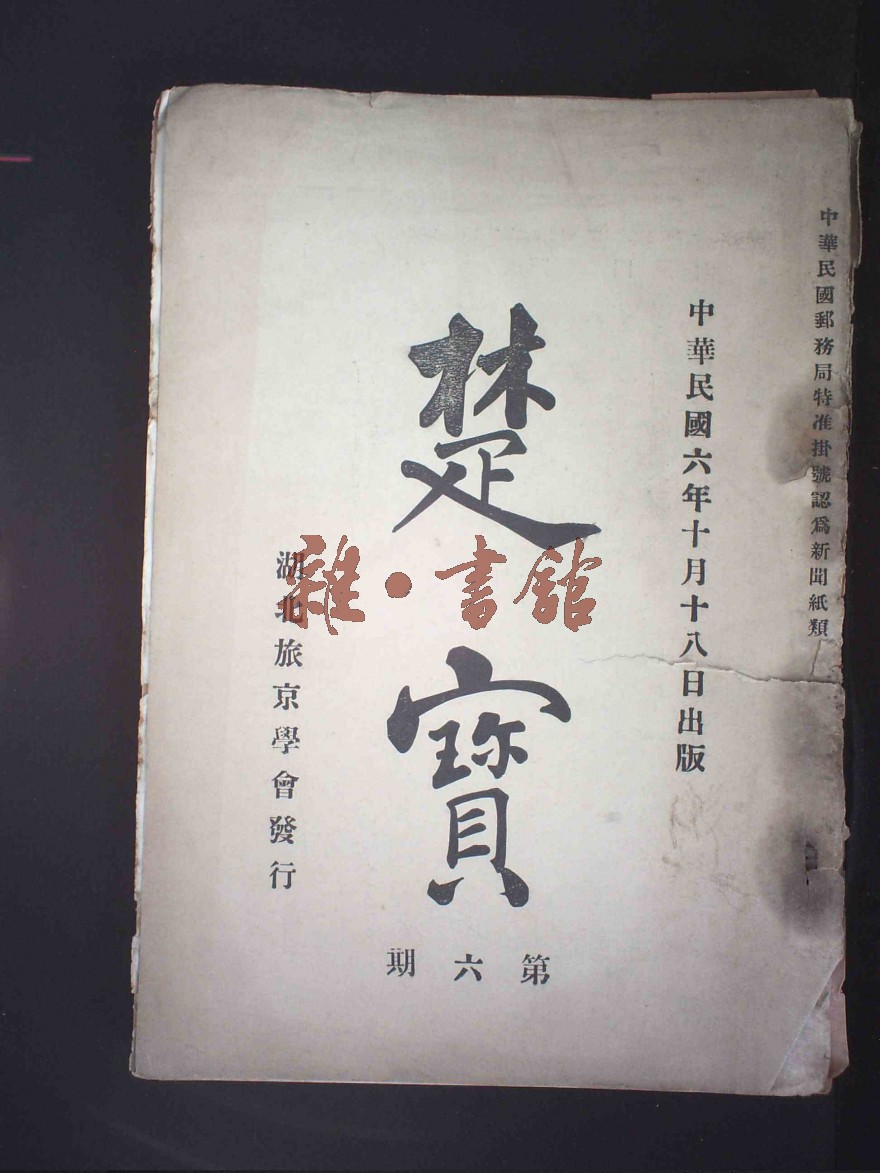 中華民國郵務局特准掛號認爲新聞紙類
中華民國六年十月十八日出版
楚寶
第六期
湖北旅京學會發行
雜·書館